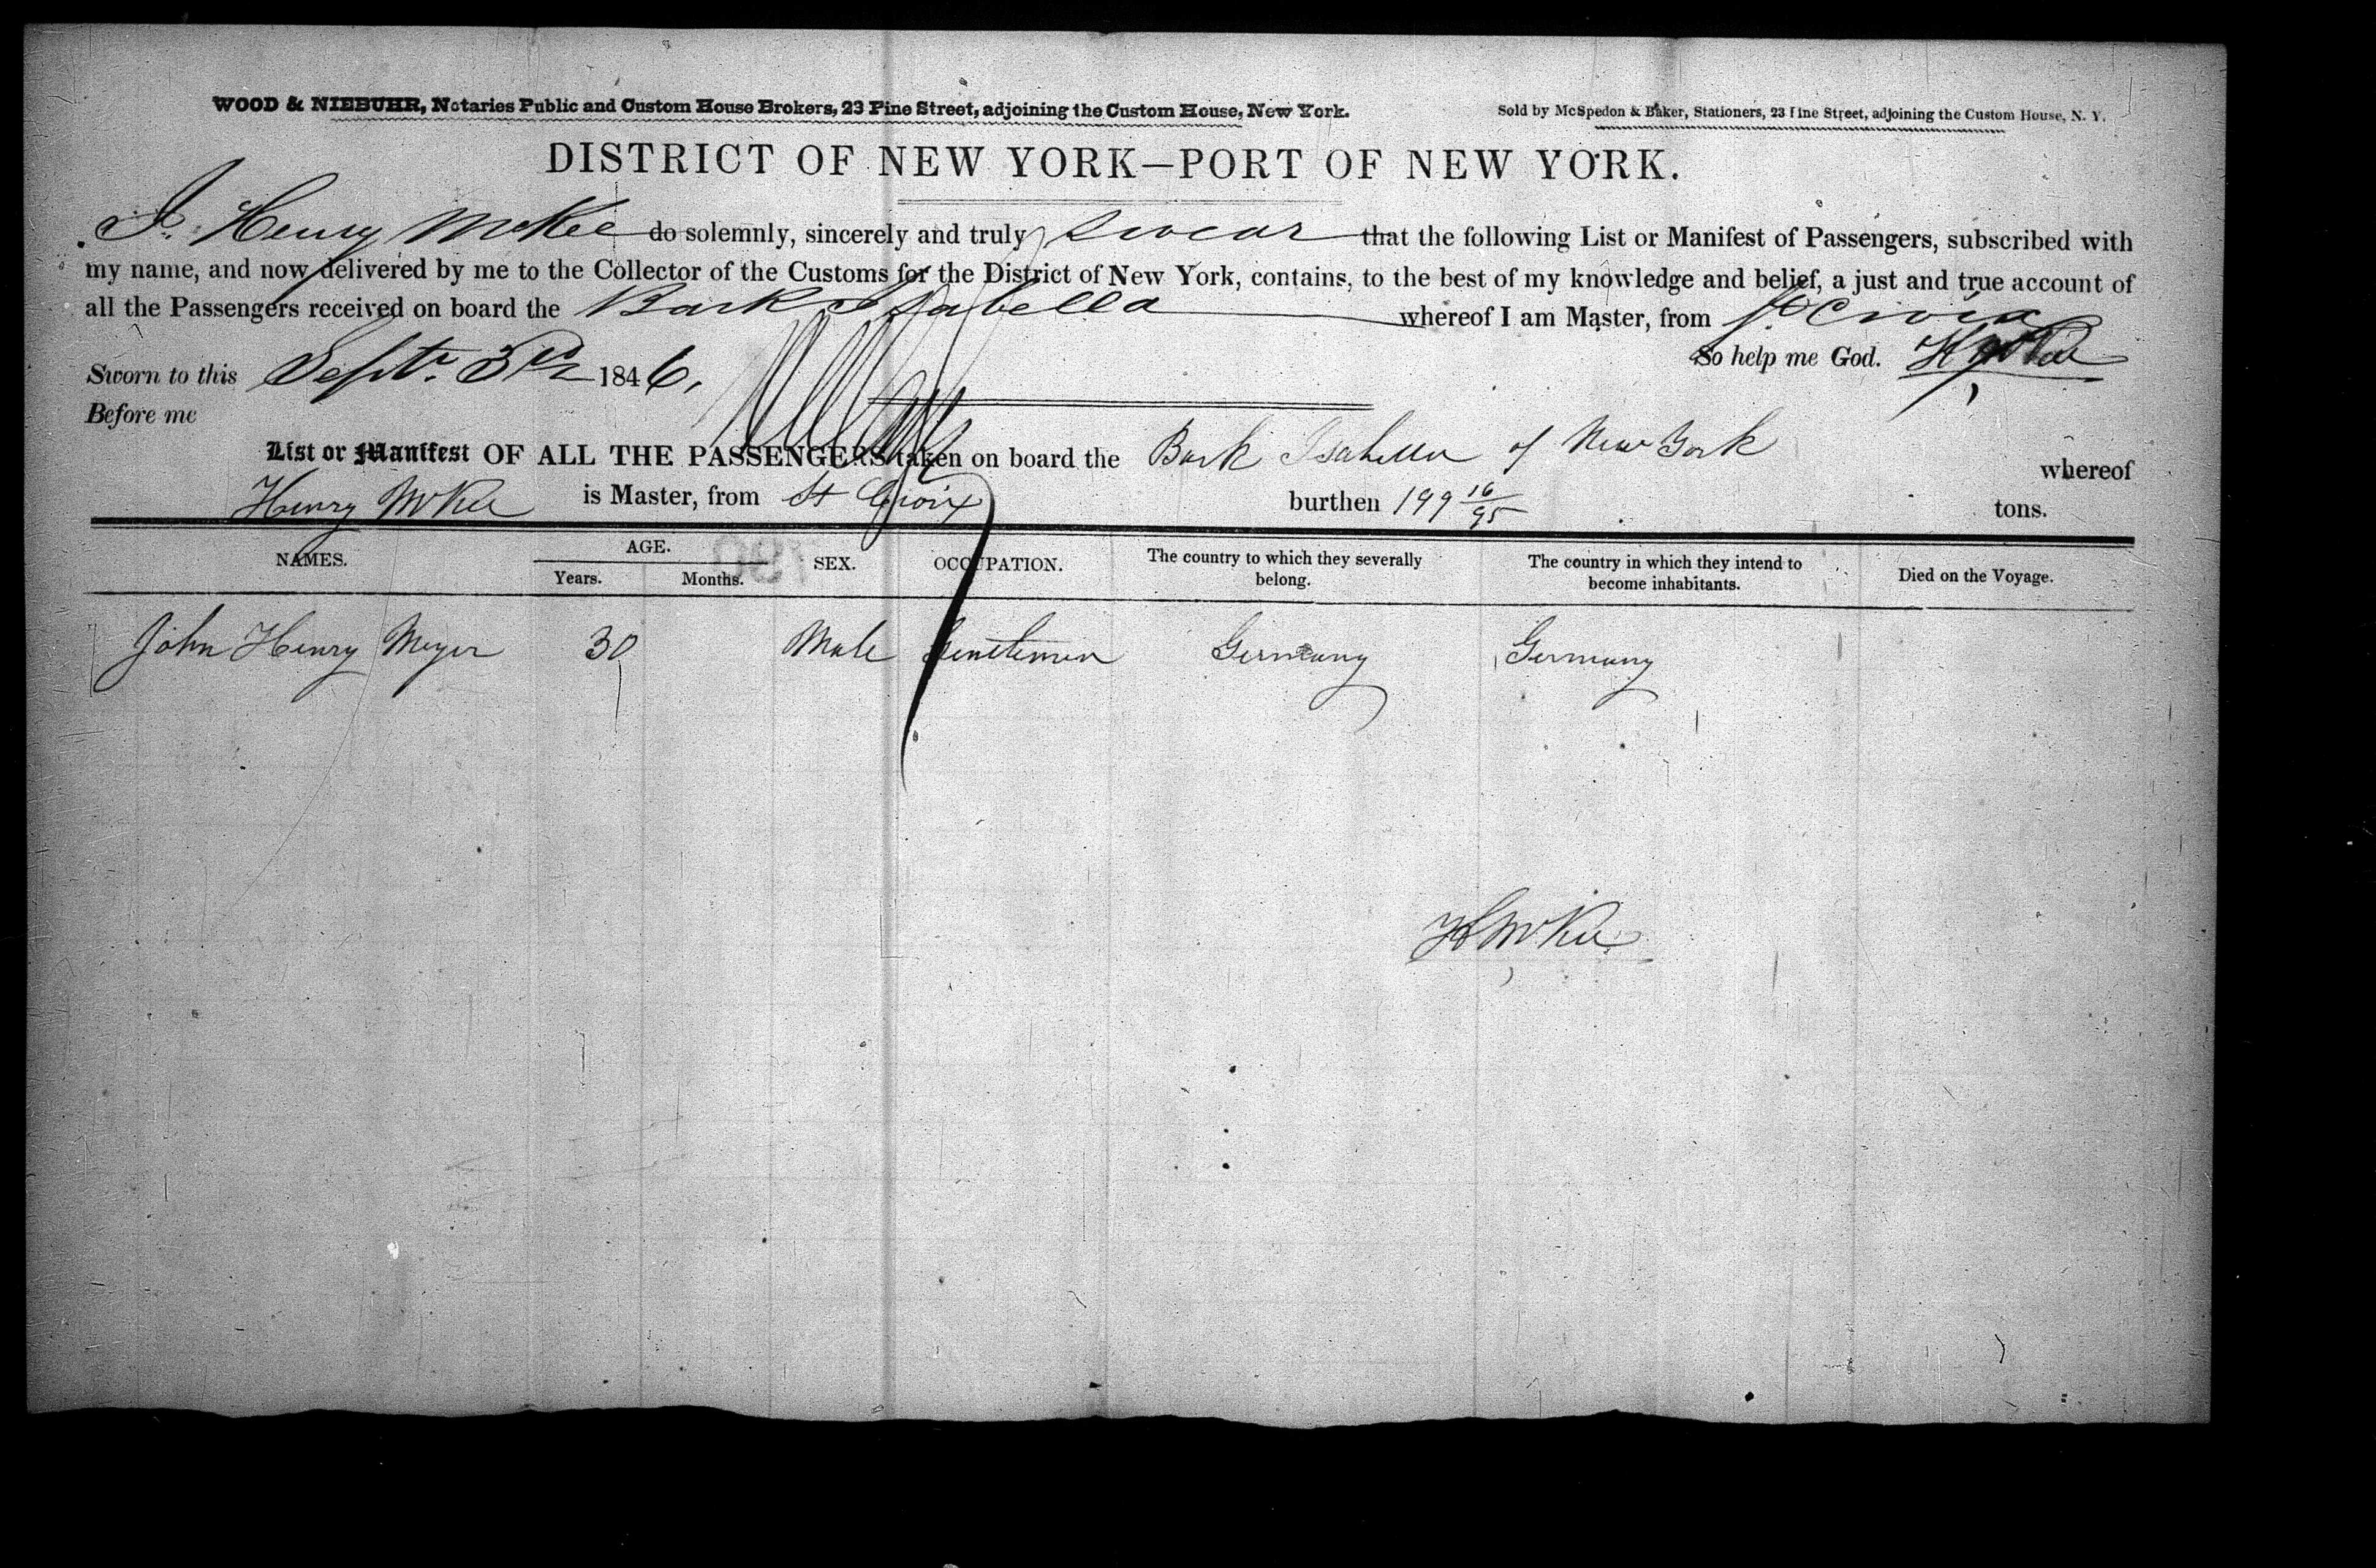 WOOD & NIEBUHR, Notaries Public and Custom House Brokers, 23 Pine Street, adjoining the Custom House, New York.
Sold by McSpedon & Baker, Stationers, 23 Pine Street, adjoining the Custom House, N. Y.
DISTRICT OF NEW YORK—PORT OF NEW YORK.
I. Henry McKee do solemnly, sincerely and truly swear that the following List or Manifest of Passengers, subscribed with
my name, and now delivered by me to the Collector of the Customs for the District of New York, contains, to the best of my knowledge and belief, a just and true account of
all the Passengers received on board the Bark Isabella whereof I am Master, from St Croix
So help me God. H McKee
Sworn to this Septr. 3rd 1846,
Before me
List or Manifest OF ALL THE PASSENGERS taken on board the Bark Isabella of New York whereof
Henry McKee is Master, from St Croix burthen 199 16/95 tons.
NAMES. AGE. SEX. OCCUPATION. The country to which they severally belong. The country in which they intend to become inhabitants. Died on the Voyage.
Years. Months.
John Henry Meyer 30 Male Gentleman Germany Germany
H McKee